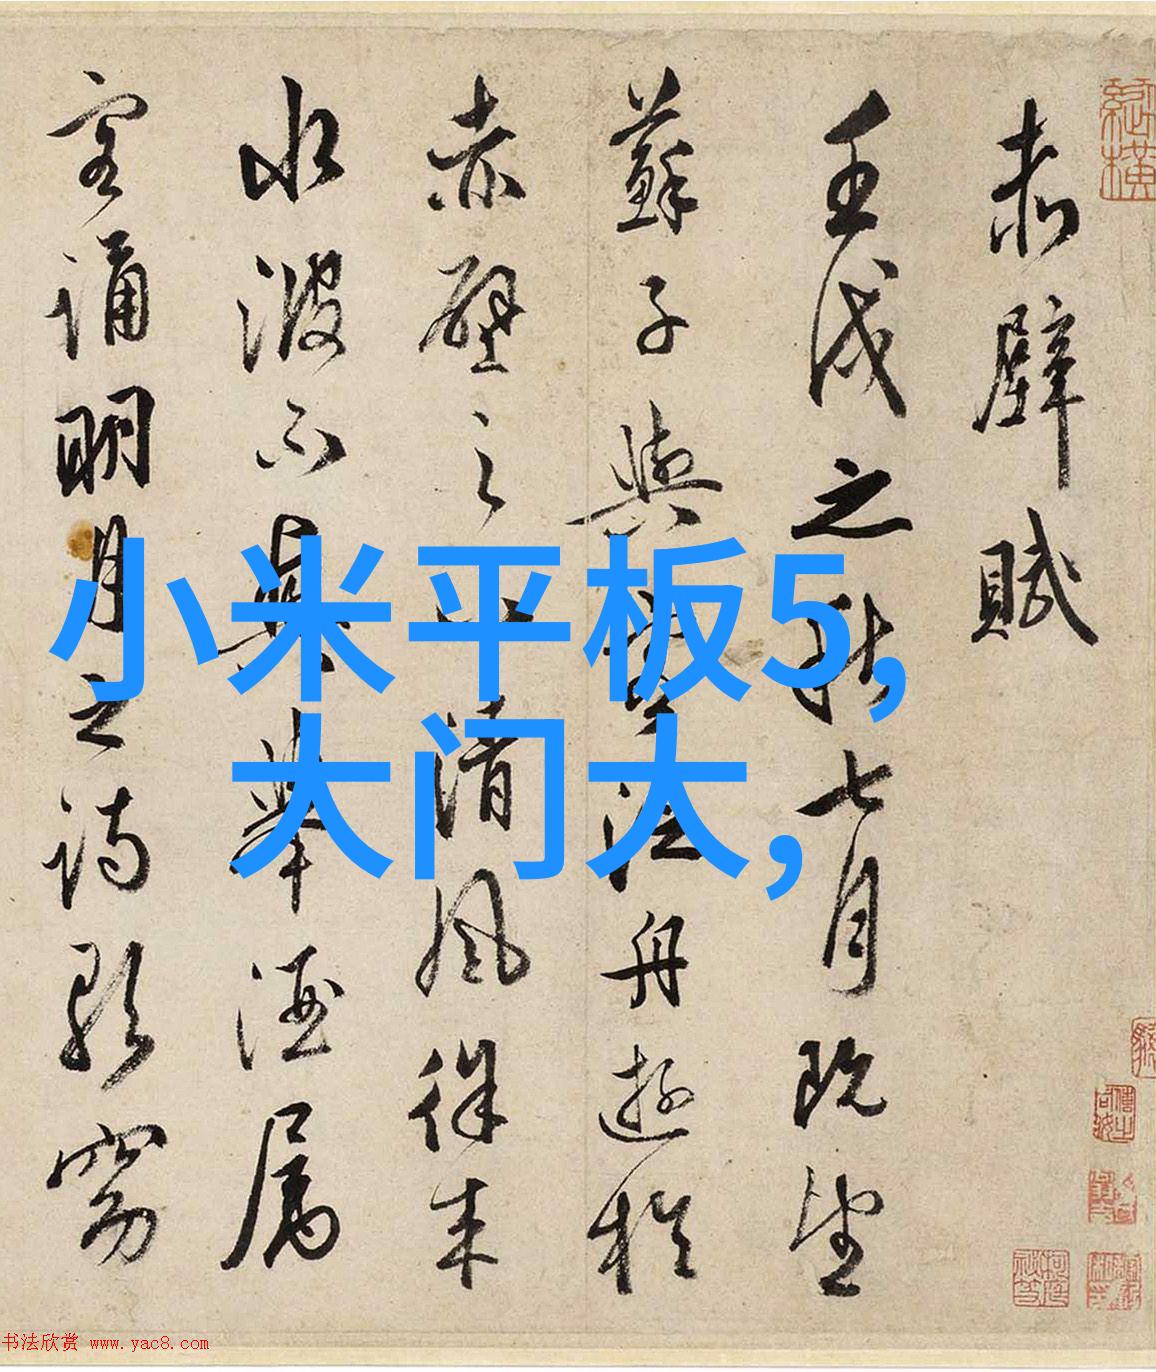 赤壁賦
壬戌之秋七月既望
蘇子與客泛舟遊於
赤壁之下清風徐来
水波不興舉酒属
客誦明月之詩歌窈
小米平板5,
大门大,
书法欣赏 www.yac8.com